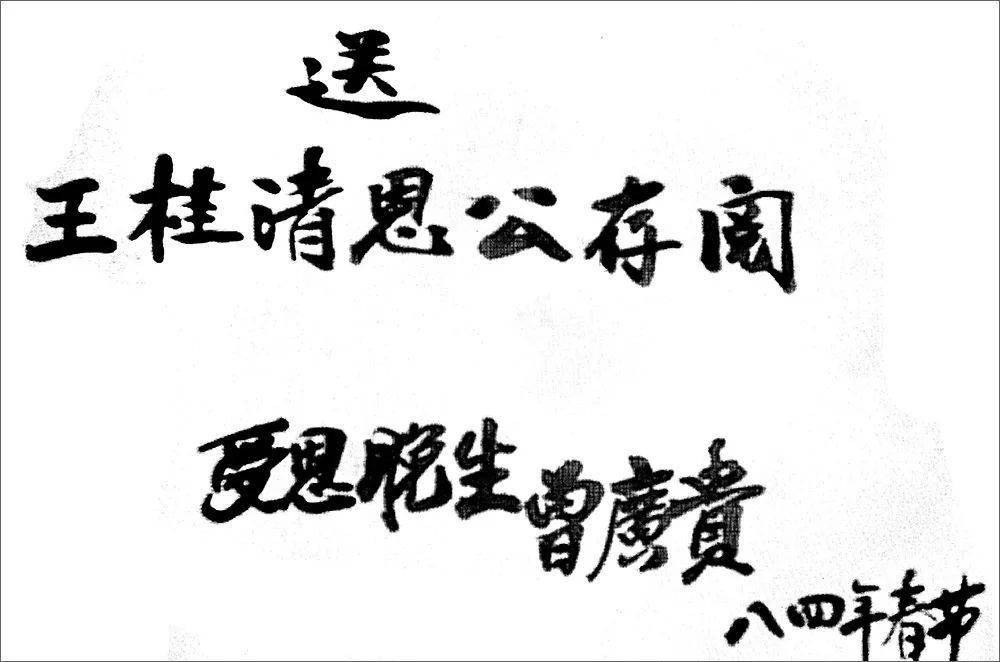 送
王桂清恩公存阅
受恩晚生曾廣貴
八四年春节